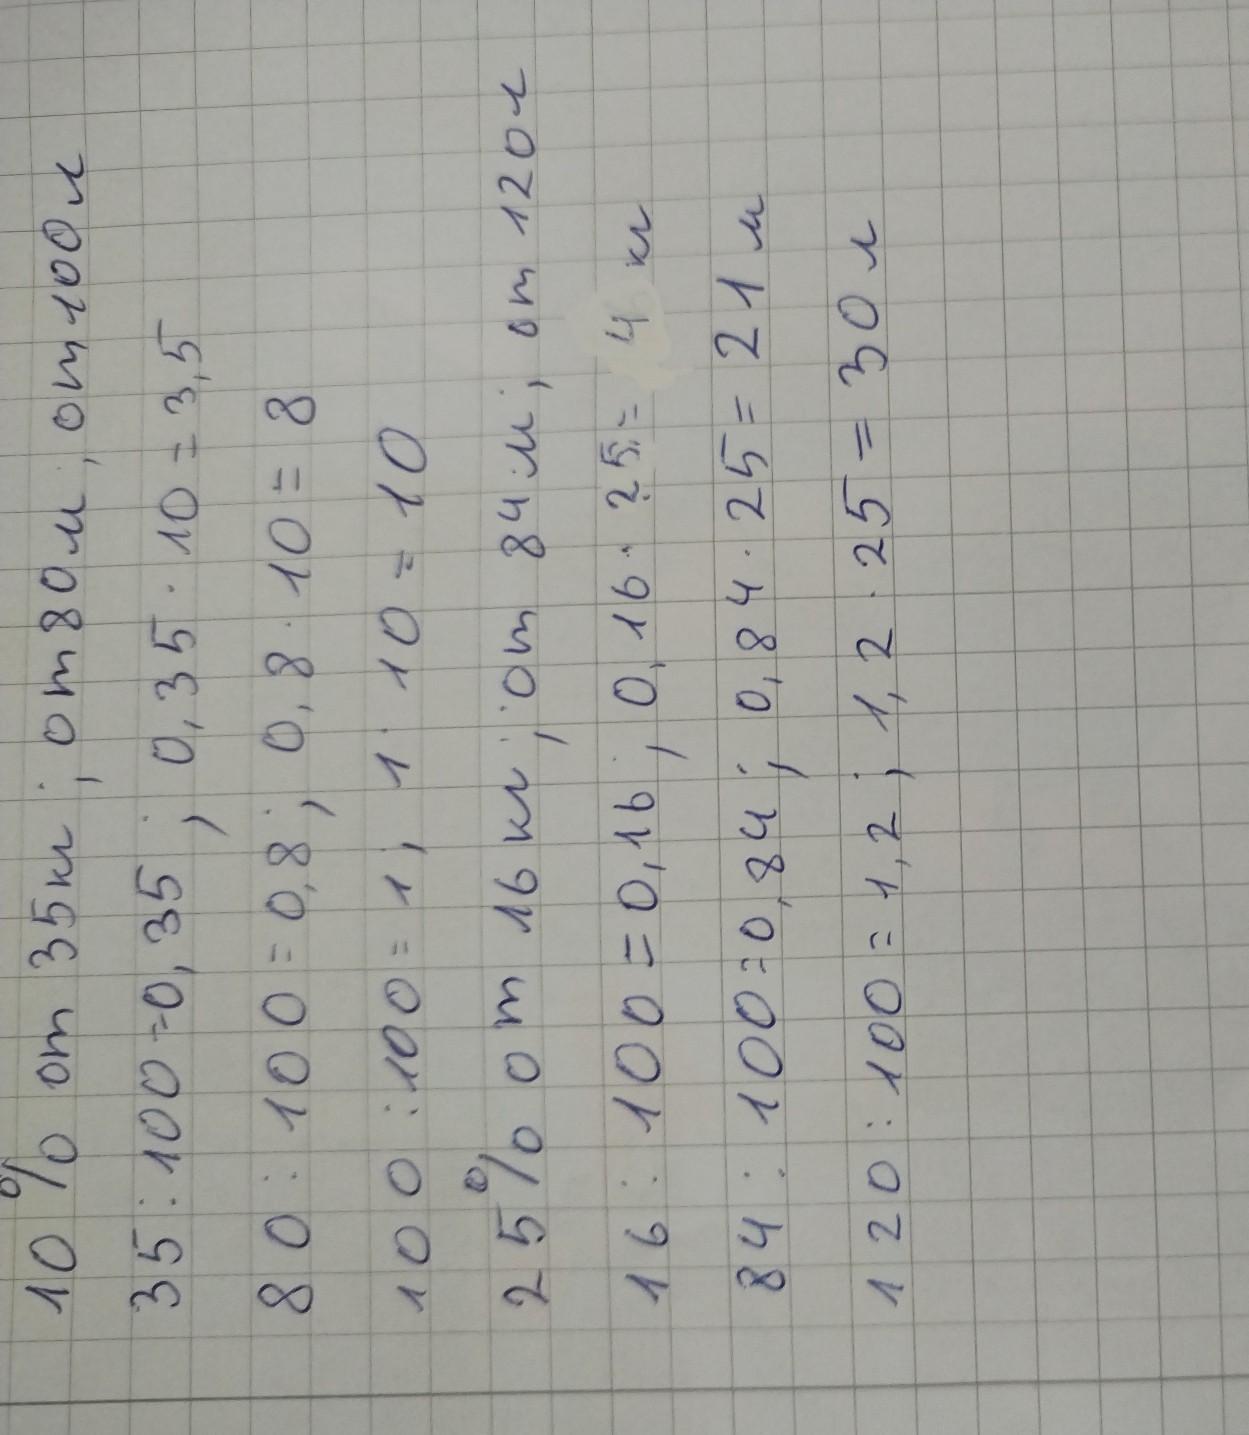 10 % от 35кг; от 80м; от 100л
35:100=0,35; 0,35·10=3,5
80:100=0,8; 0,8·10=8
100:100=1; 1·10=10
25% от 16кг; от 84м; от 120л
16:100=0,16; 0,16·25=4 кг
84:100=0,84; 0,84·25=21 м
120:100=1,2; 1,2·25=30 л